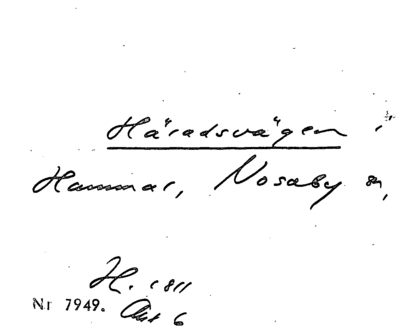 Häradsvägen i
Hammar, Nosaby sn,
H. 1811
Nr 7949. Akt 6